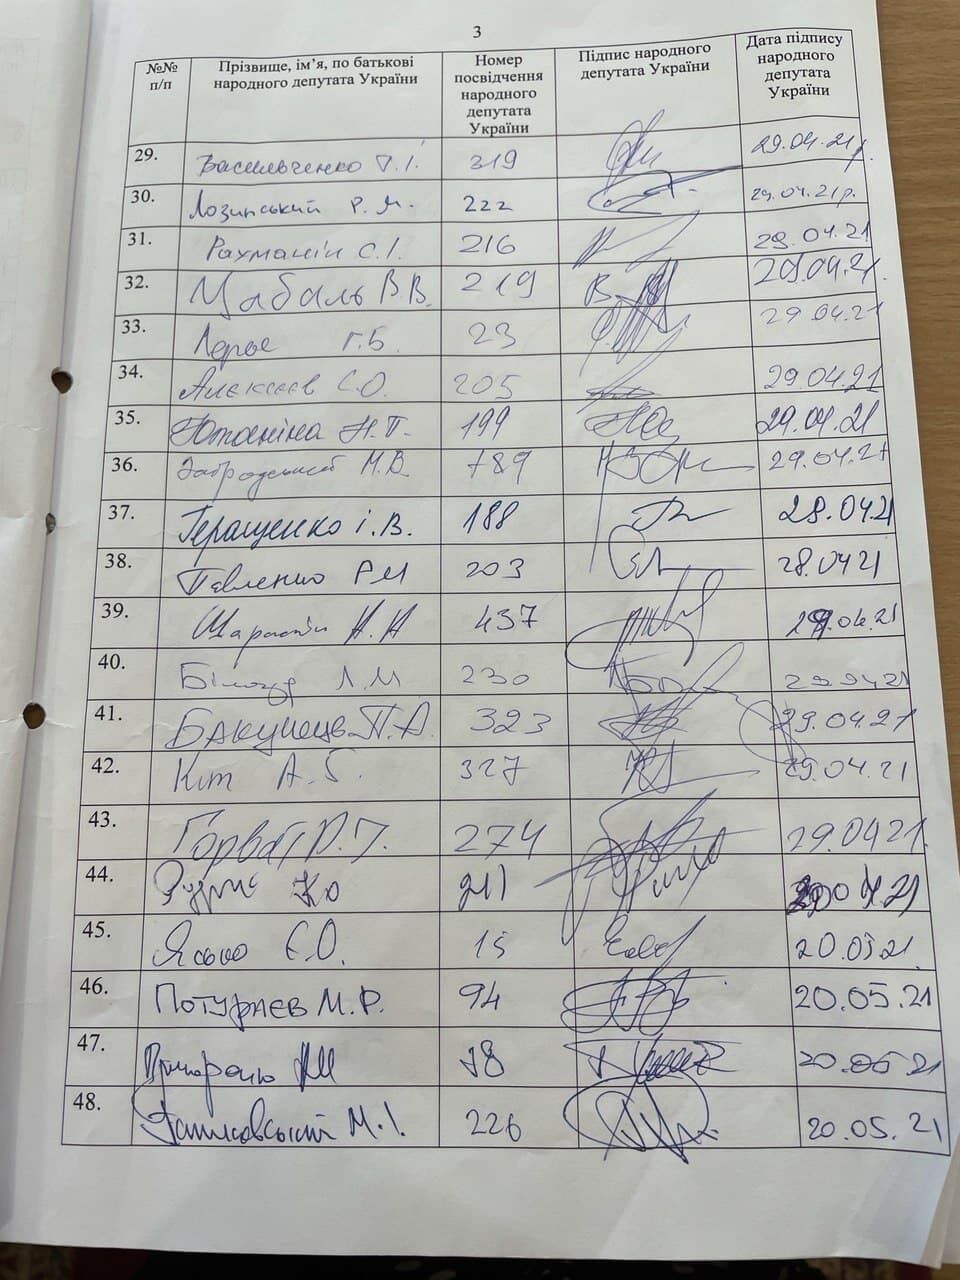 3
№№ п/п Прізвище, ім’я, по батькові народного депутата України Номер посвідчення народного депутата України Підпис народного депутата України Дата підпису народного депутата України
29. Васильченко Г.І. 319 29.04.21р.
30. Лозинський Р.М. 222 29.04.21р.
31. Рахманін С.І. 216 29.04.21
32. Цабаль В.В. 219 29.04.21
33. Лерос Г.Б. 23 29.04.21
34. Алєксєєв С.О. 205 29.04.21
35. Южаніна Н.П. 199 29.04.21
36. Забродський М.В. 189 29.04.21
37. Геращенко І.В. 188 28.04.21
38. Павленко Р.М 203 28.0421
39. 437 29.04.21
40. Білозір Л.М 230 29.0421
41. Бакунець П.А. 323 29.04.21
42. Кіт А.Б. 327 29.04.21
43. Горват Р.І. 274 29.0421.
44. 241
45. Ясько Є.О. 15 20.05.21.
46. Потураєв М.Р. 94 20.05.21
47. 20.05 21
48. М.І. 226 20.05.21